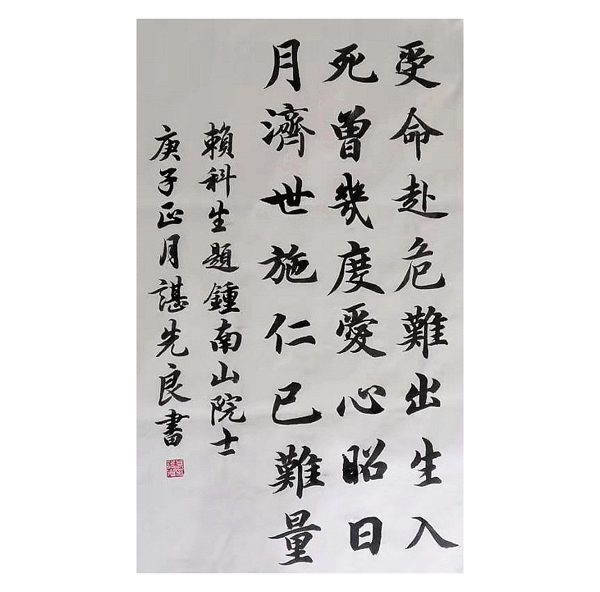 受命赴危難出生入
死曾幾度愛心昭日
月濟世施仁已難量
賴科生題鍾南山院士
庚子正月諶先良書